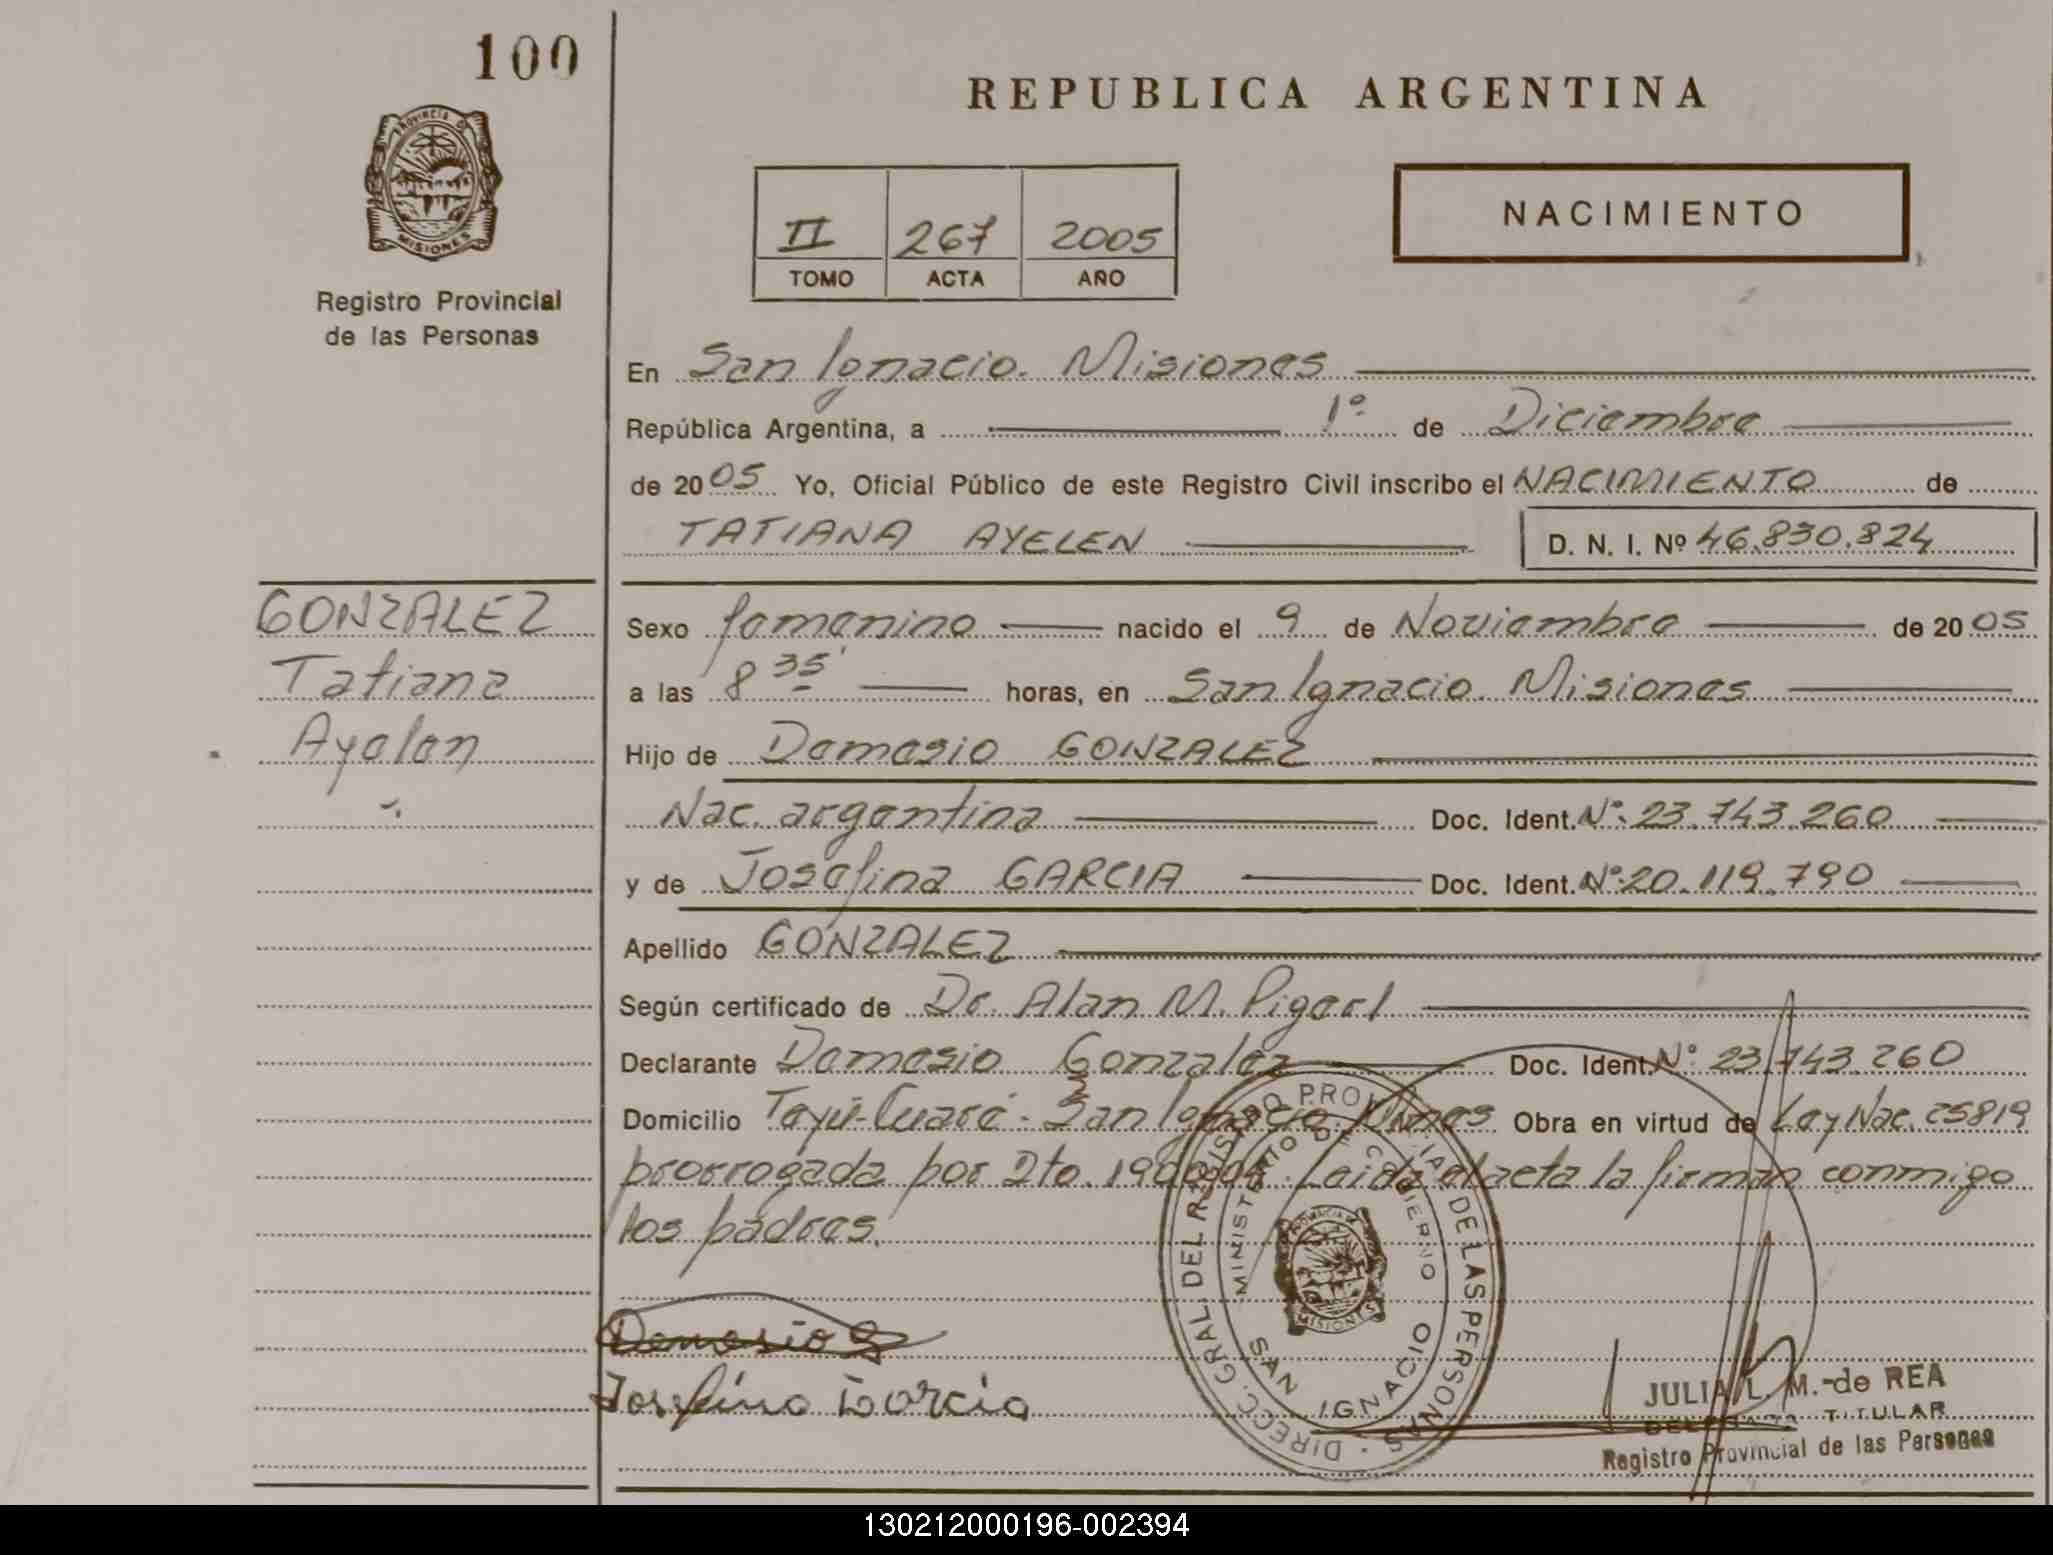 100
REPUBLICA ARGENTINA
PROVINCIA DE
MISIONES
Registro Provincial
de las Personas
II 267 2005
TOMO ACTA AÑO
NACIMIENTO
En San Ignacio. Misiones
República Argentina, a 1º de Diciembre
de 2005 Yo, Oficial Público de este Registro Civil inscribo el NACIMIENTO de
TATIANA AYELEN D. N. I. Nº 46.830.824
GONZALEZ
Tatiana
Ayelen
Sexo femenino nacido el 9 de Noviembre de 2005
a las 8 35' horas, en San Ignacio. Misiones
Hijo de Damasio GONZALEZ
Nac. argentina Doc. Ident. Nº: 23.743.260
y de Josefina GARCIA Doc. Ident. Nº: 20.119.790
Apellido GONZALEZ
Según certificado de Dr. Alan M.
Declarante Damasio Gonzalez Doc. Ident. Nº 23.743.260
Domicilio Teyú-Cuaré - San Ignacio. Mnes Obra en virtud de Ley Nac. 25819
prorrogada por Dto. Leida el acta la firman conmigo
los padres.
DIRECC. GRAL. DEL REGISTRO PROVINCIAL DE LAS PERSONAS
MINISTERIO DE GOBIERNO
SAN IGNACIO
MISIONES
Damasio G
Josefina Garcia
JULIA L. M. de REA
DELEGADA TITULAR
Registro Provincial de las Personas
130212000196-002394